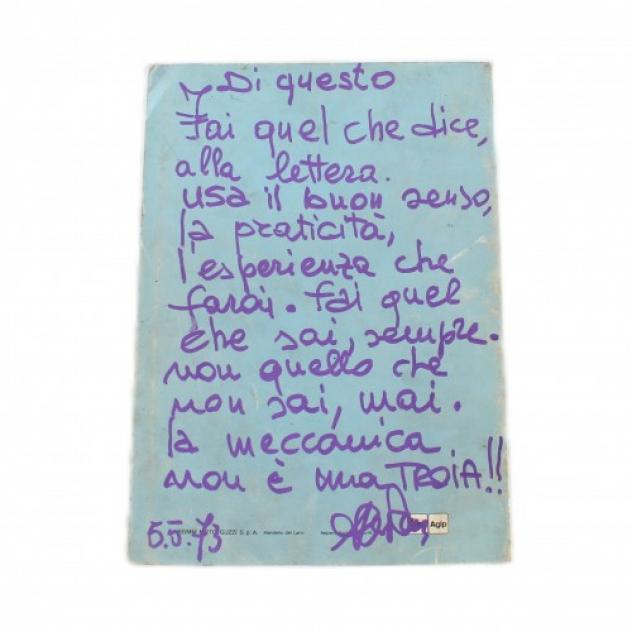 Di questo
Fai quel che dice,
alla lettera.
usa il buon senso,
la praticità,
l'esperienza che
farai. Fai quel
che sai, sempre.
non quello che
non sai, mai.
la meccanica
non è una TROIA!!
MOTO GUZZI S.p.A. Mandello del Lario
Agip